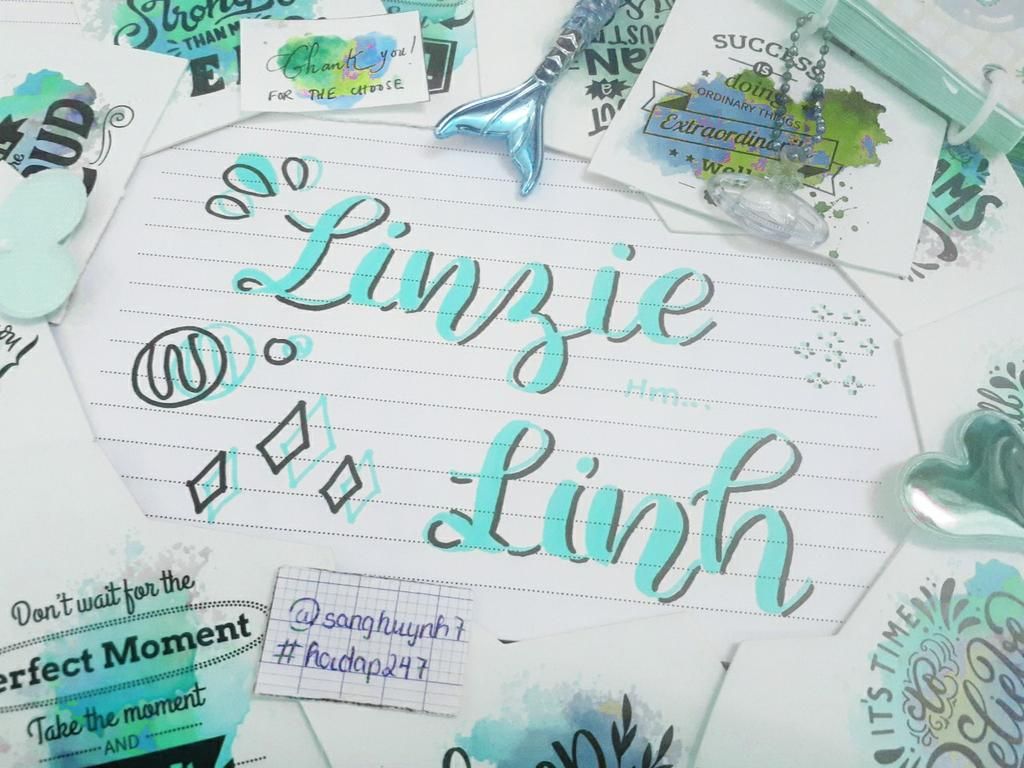 Strong
THAN
Thank you!
FOR THE CHOOSE
SUCCESS
IS
doing
ORDINARY THINGS
Extraordin
well
OUD
Linzie
Hm...
Linh
Don't wait for the
erfect Moment
Take the moment
AND
@sanghuynh7
#haidap247
IT'S TIME
To